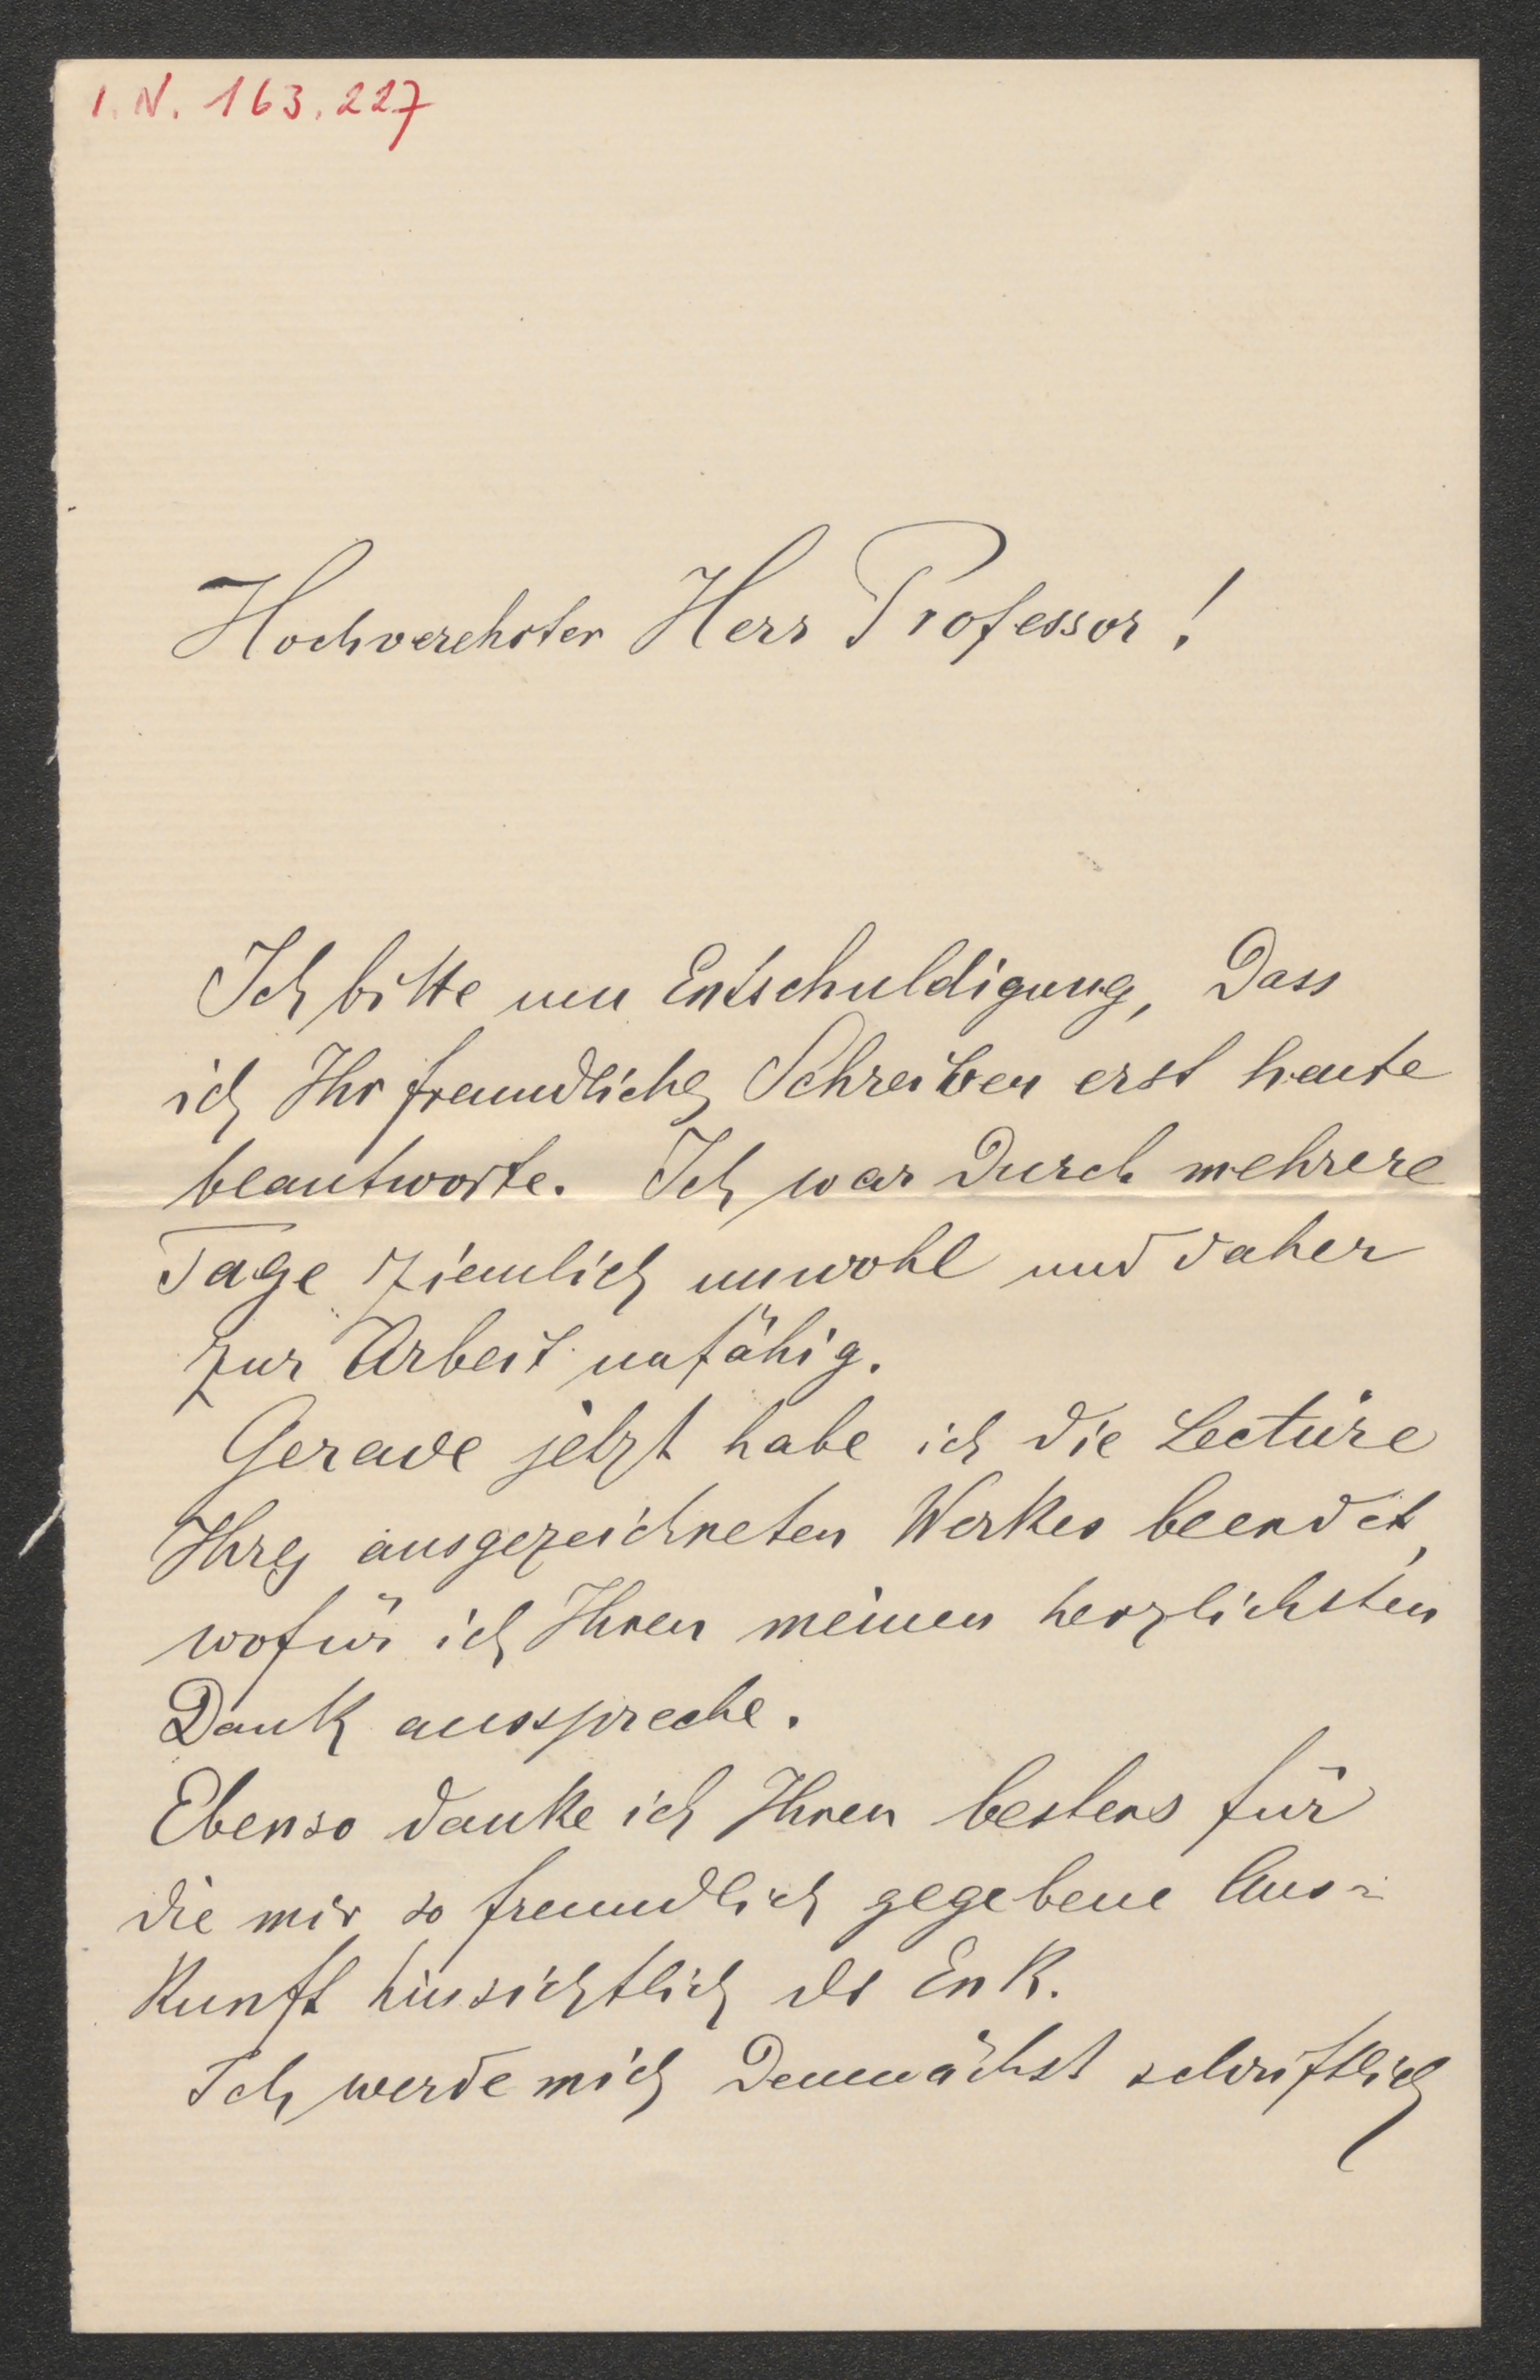 I. N. 163.227
Hochverehrter Herr Professor!
Ich bitte um Entschuldigung, dass
ich Ihr freundliches Schreiben erst heute
beantworte. Ich war durch mehrere
Tage ziemlich unwohl und daher
zur Arbeit unfähig.
Gerade jetzt habe ich die Lectüre
Ihres ausgezeichneten Werkes beendet,
wofür ich Ihnen meinen herzlichsten
Dank ausspreche.
Ebenso danke ich Ihnen bestens für
die mir so freundlich gegebene Aus=
kunft hinsichtlich des Enk.
Ich werde mich demnächst schriftlich